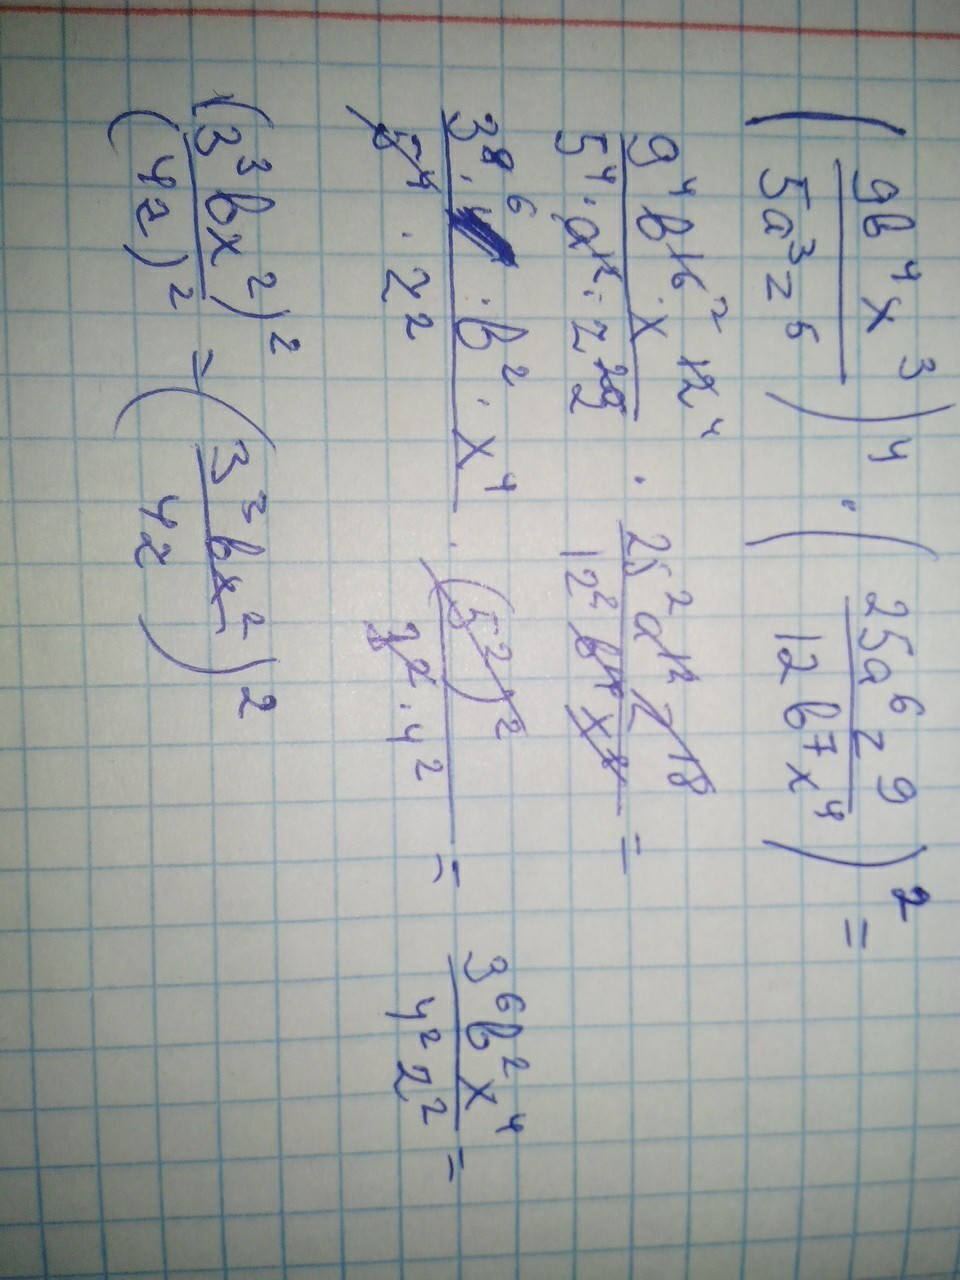 (9b⁴x³ / 5a³z⁵)⁴ · (25a⁶z⁹ / 12b⁷x⁴)² =
9⁴b¹⁶ ² · x¹² ⁴ / 5⁴ · a¹² · z²⁰ ² · 25²a¹²z¹⁸ / 12²b¹⁴x⁸ =
3⁸ ⁶ · b² · x⁴ / 5⁴ · z² · (5²)² / 3² · 4² = 3⁶b²x⁴ / 4²z² =
(3³bx²)² / (4z)² = (3³bx² / 4z)²